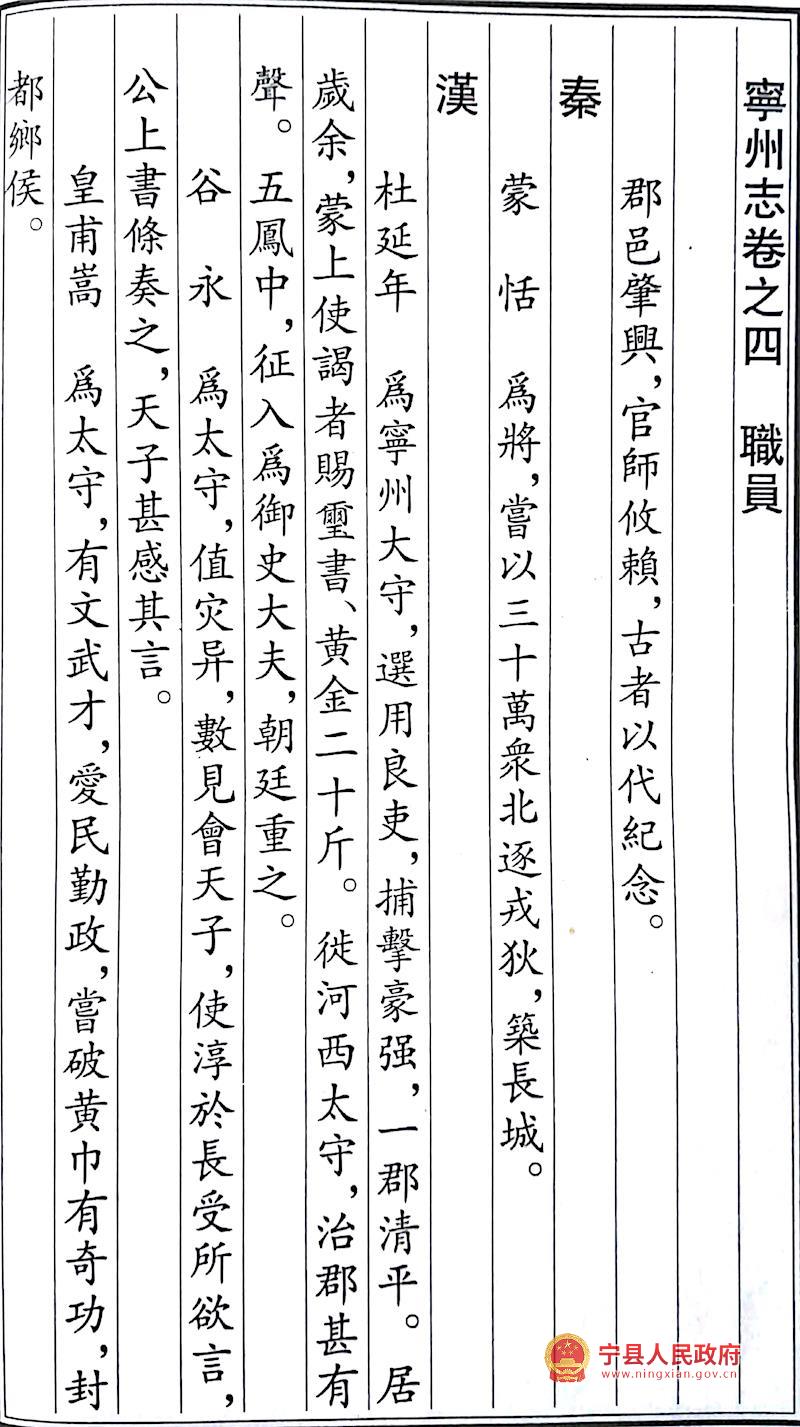 寧州志卷之四　職員
郡邑肇興，官師攸賴，古者以代紀念。
秦
蒙　恬　爲將，嘗以三十萬衆北逐戎狄，築長城。
漢
杜延年　爲寧州大守，選用良吏，捕擊豪强，一郡清平。居
歲余，蒙上使謁者賜璽書、黄金二十斤。徙河西太守，治郡甚有
聲。五鳳中，征入爲御史大夫，朝廷重之。
谷　永　爲太守，值灾异，數見會天子，使淳於長受所欲言，
公上書條奏之，天子甚感其言。
皇甫嵩　爲太守，有文武才，愛民勤政，嘗破黄巾有奇功，封
都鄉侯。
宁县人民政府
www.ningxian.gov.cn